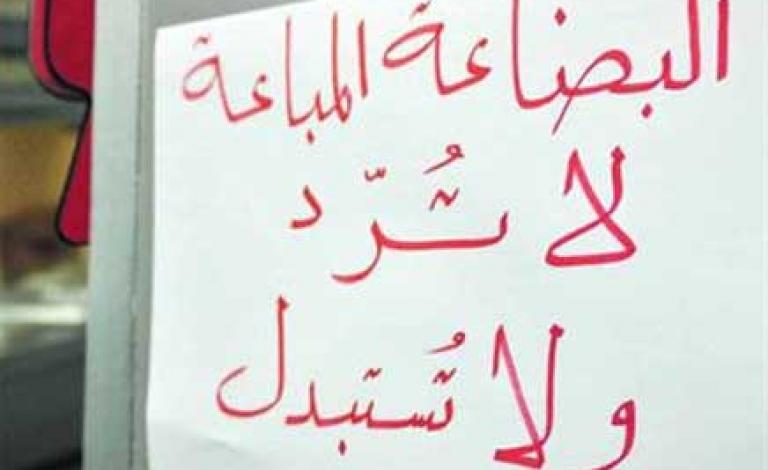 البضاعة المباعة
لا تُردّ
ولا تُستبدل